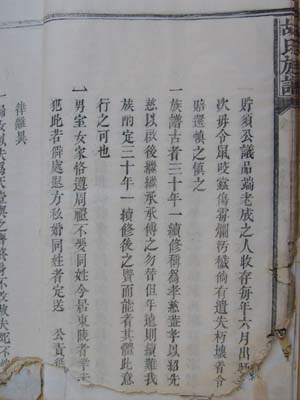 胡氏族譜
貯須公議品端老成之人收存每年六月出
次毋令鼠咬蟲傷霉爛污穢倘有遺失朽壞音令
賠還慎之慎之
一族譜古者三十年一續修稱為孝慈蓋孝以紹先
慈以啟後繼繼承承傳之勿替但年遠則續難我
族酌定三十年一續修後之賢而能者其體此意
行之可也
一男室女家恪遵周禮不娶同姓今居東陵者幸
犯此若僻處遐方私婚同姓者定送 公責
律離異